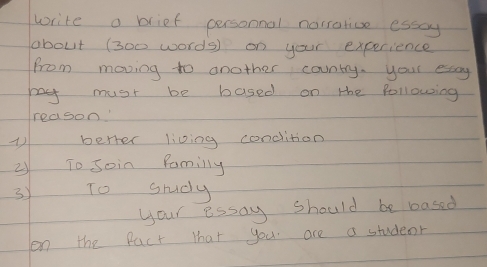 write a brief personnal narrative essay
about (300 words) on your experience
from moving to another country. your essay
must be based on the following
reason:
1) better living condition
2) To Join familly
3) To study
your essay should be based
on the fact that you are a student